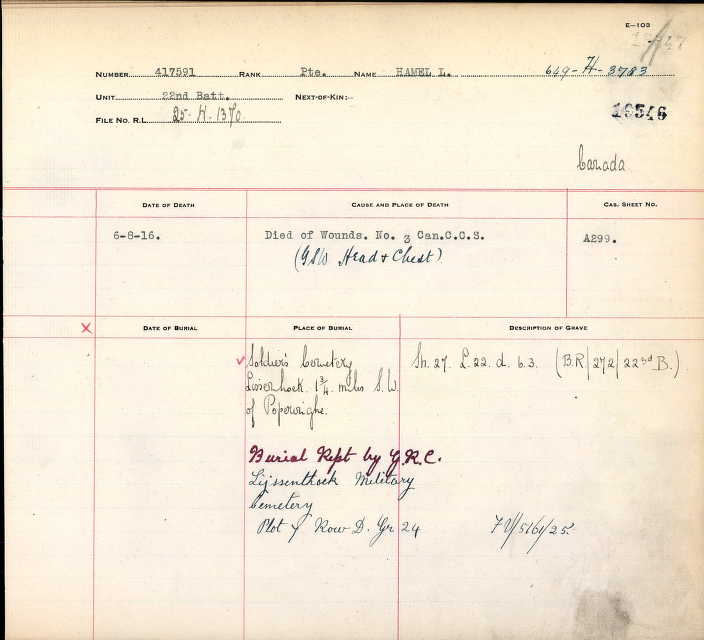 E-103
NUMBER 417591 RANK Pte. NAME HAMEL L. 649-H-3783
UNIT 22nd Batt. NEXT-OF-KIN:-
FILE NO. R.L. 25-H-1370
Canada
DATE OF DEATH CAUSE AND PLACE OF DEATH CAS. SHEET NO.
6-8-16. Died of Wounds. No. 3 Can.C.C.S. A299.
(GSW Head & Chest)
X DATE OF BURIAL PLACE OF BURIAL DESCRIPTION OF GRAVE
Soldier's Cemetery Sh. 27. L.22. d. 6.3. (B.R/272/22nd B.)
1 3/4 miles S.W.
of Poperinghe.
Burial Rept by G.R.C.
Lijssenthoek Military
Cemetery
Plot Row D. Gr 24